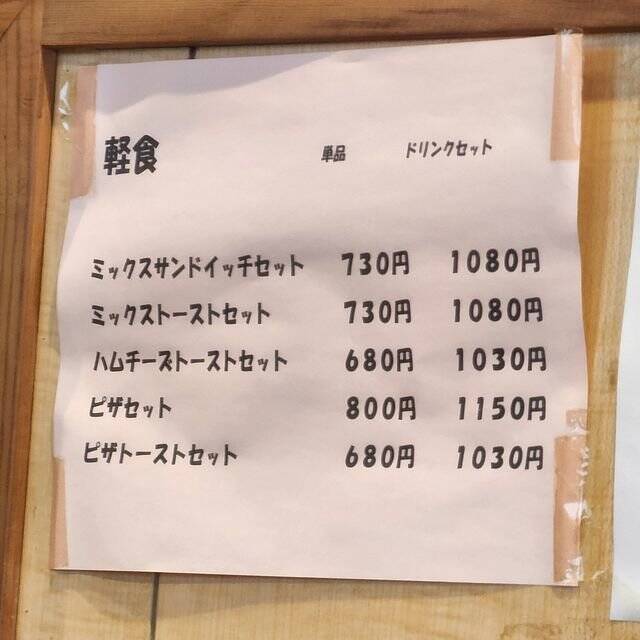 軽食 単品 ドリンクセット
ミックスサンドイッチセット 730円 1080円
ミックストーストセット 730円 1080円
ハムチーズトーストセット 680円 1030円
ピザセット 800円 1150円
ピザトーストセット 680円 1030円